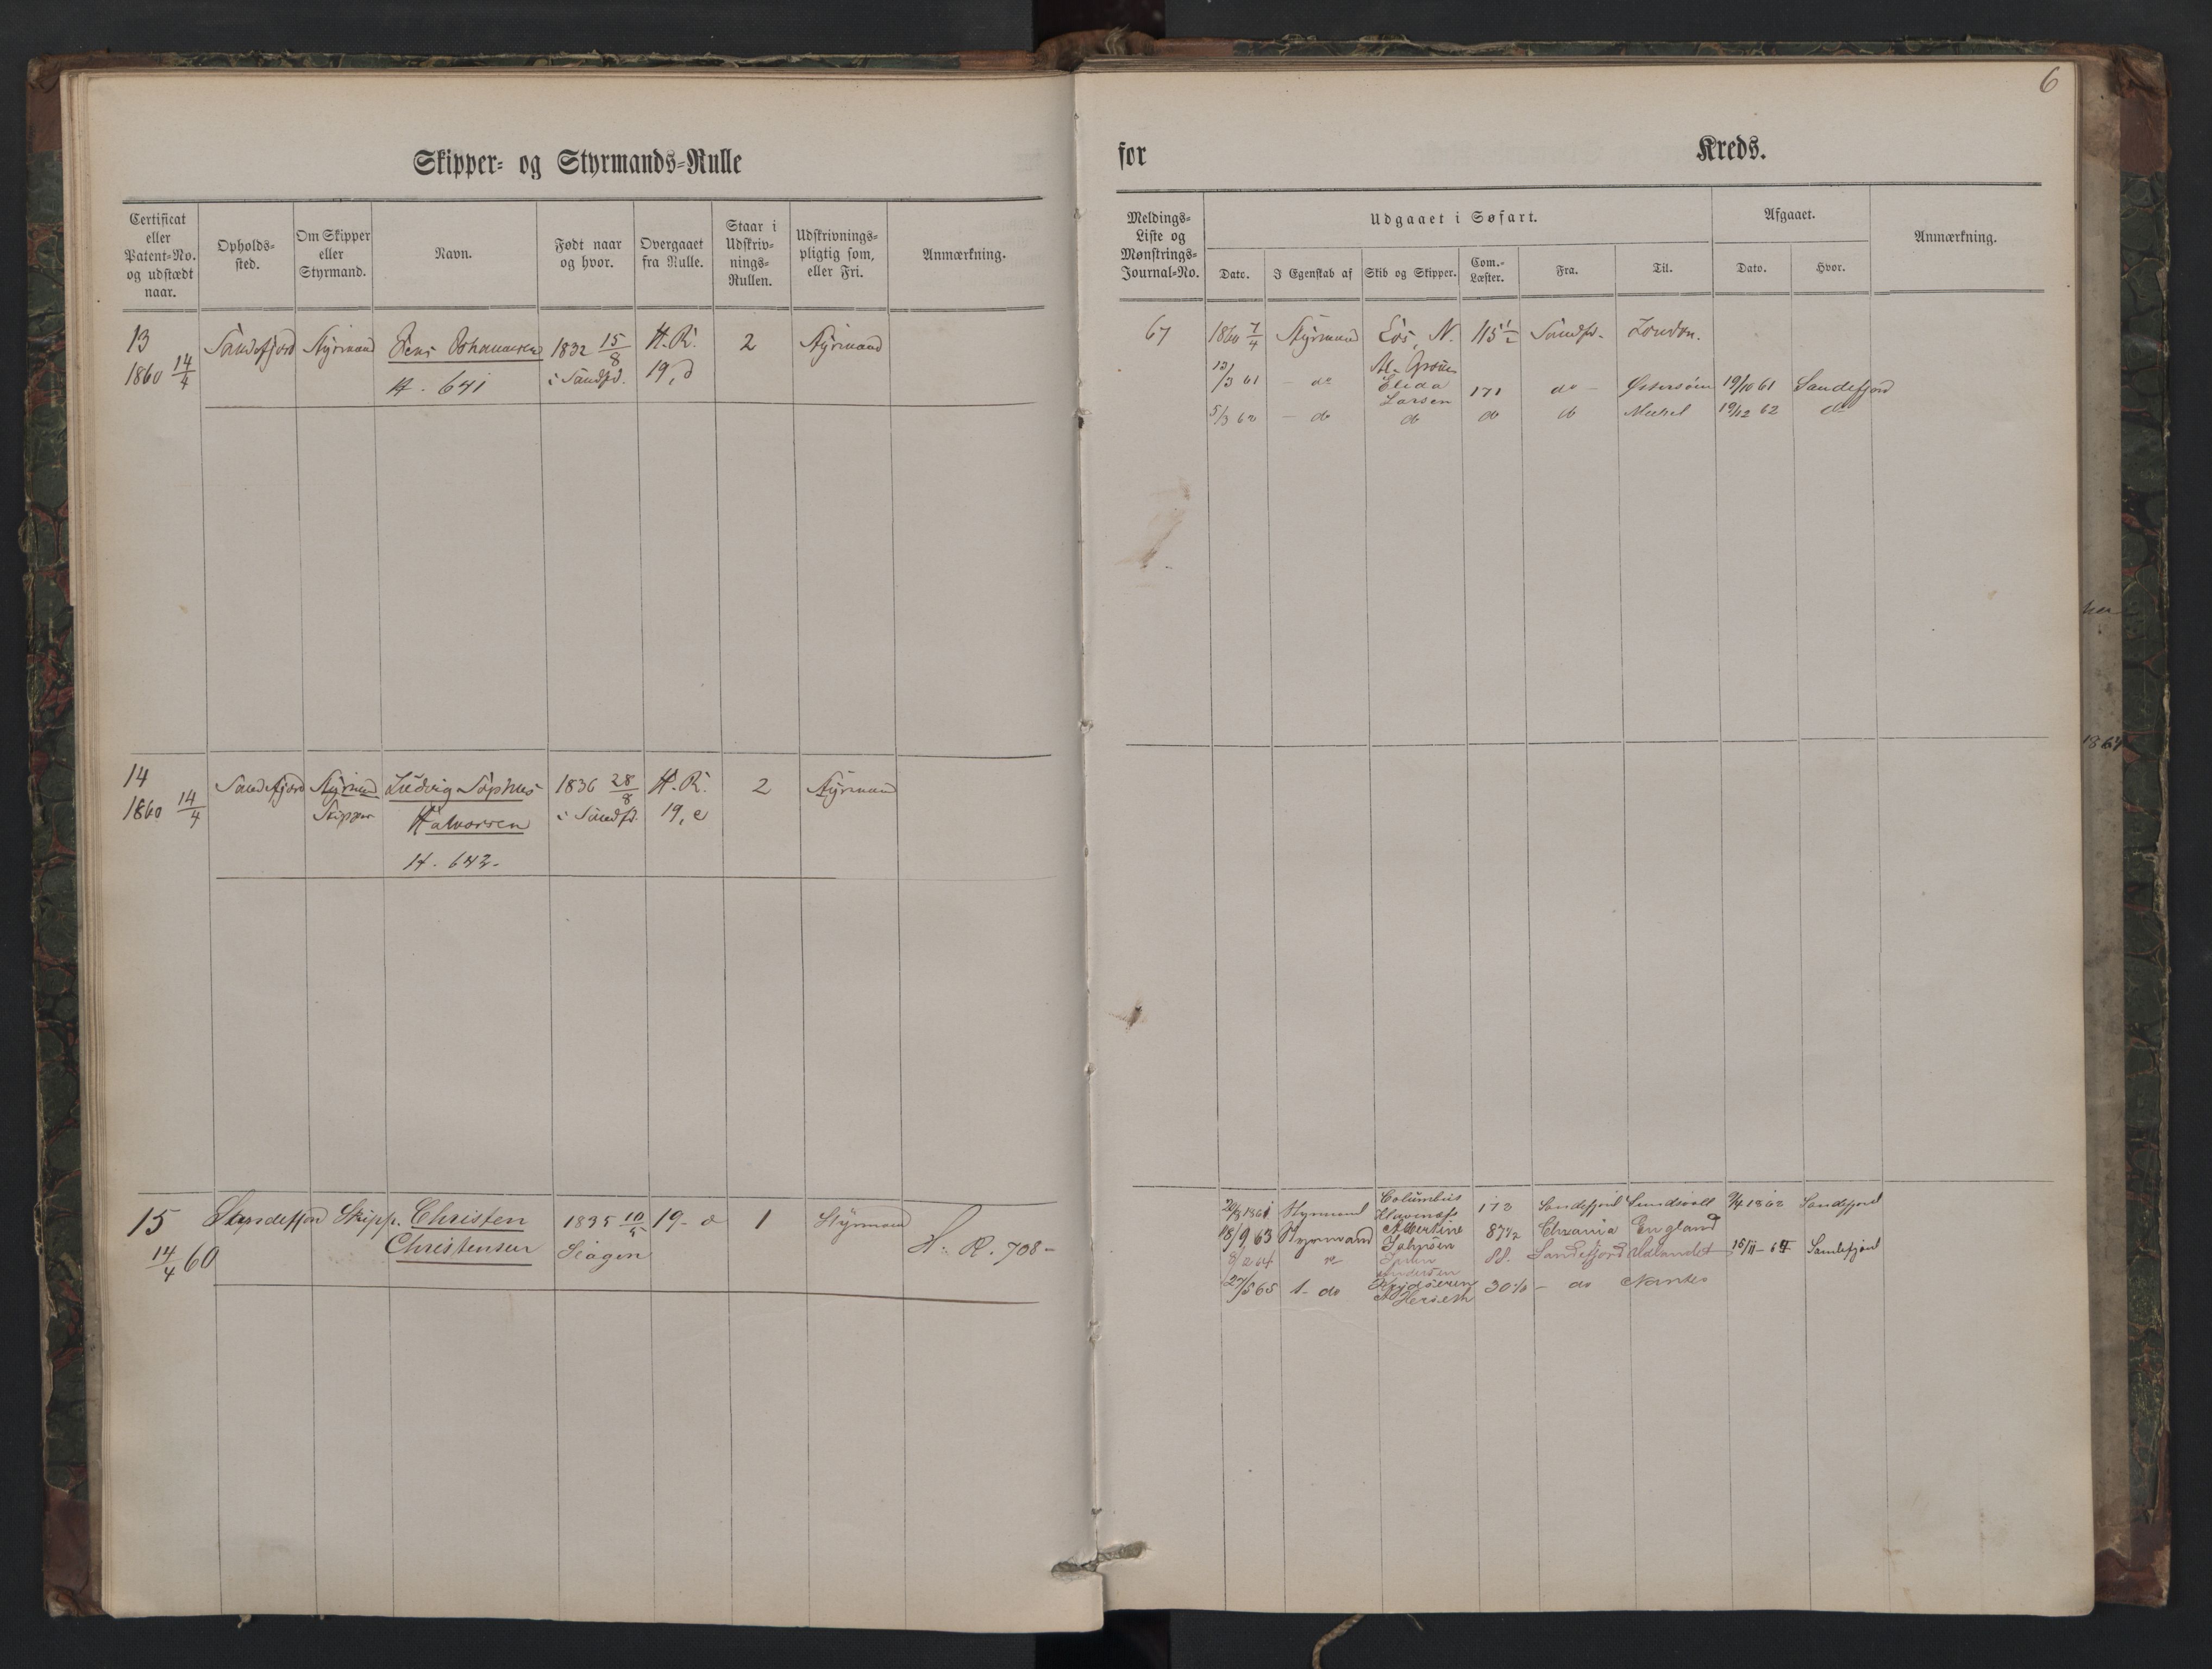 6
Skipper- og Styrmands-Rulle
for Kreds.
Certificat eller Patent-No. og udstædt naar.
Opholds-sted.
Om Skipper eller Styrmand.
Navn.
Født naar og hvor.
Overgaaet fra Rulle.
Staar i Udskriv-nings-Rullen.
Udskrivnings-pligtig som, eller Fri.
Anmærkning.
Meldings-Liste og Mønstrings-Journal-No.
Udgaaet i Søfart.
Dato.
I Egenskab af
Skib og Skipper.
Com.-Læster.
Fra.
Til.
Afgaaet.
Dato.
Hvor.
Anmærkning.
13 Sandefjord Styrmand Jens Johannesen 1832 15/8 H.R. 2 Styrmand
1860 14/4 H. 641 i Sandfd. 19, d
67 1860 7/4 Styrmand Eos, N. 115 1/2 Sandfd. London.
13/3 61 - do Elida 171 do - Østersøen 19/10 61 Sandefjord
Larsen
5/3 62 - do do do do 19/12 62 do
14 Sandefjord Styrmand Ludvig Sophus 1836 28/8 H.R. 2 Styrmand
1860 14/4 Skipper Halvorsen i Sandfd. 19, e
H. 642.
15 Sandefjord Skipp. Christen 1835 10/5 19- 1 Styrmand
14/4 60 Christensen H. R. 708-
1861 Styrmand Columbus 173 Sandefjord Sundsvall 1862 Sandefjord
18/9 63 Styrmand Albertine 87 1/2 Chrania England
8/2 64 88. Sandefjord 15/11 - 64 Sandefjord
Andersen
27/5 65 1. do - do Nantes
her
1864